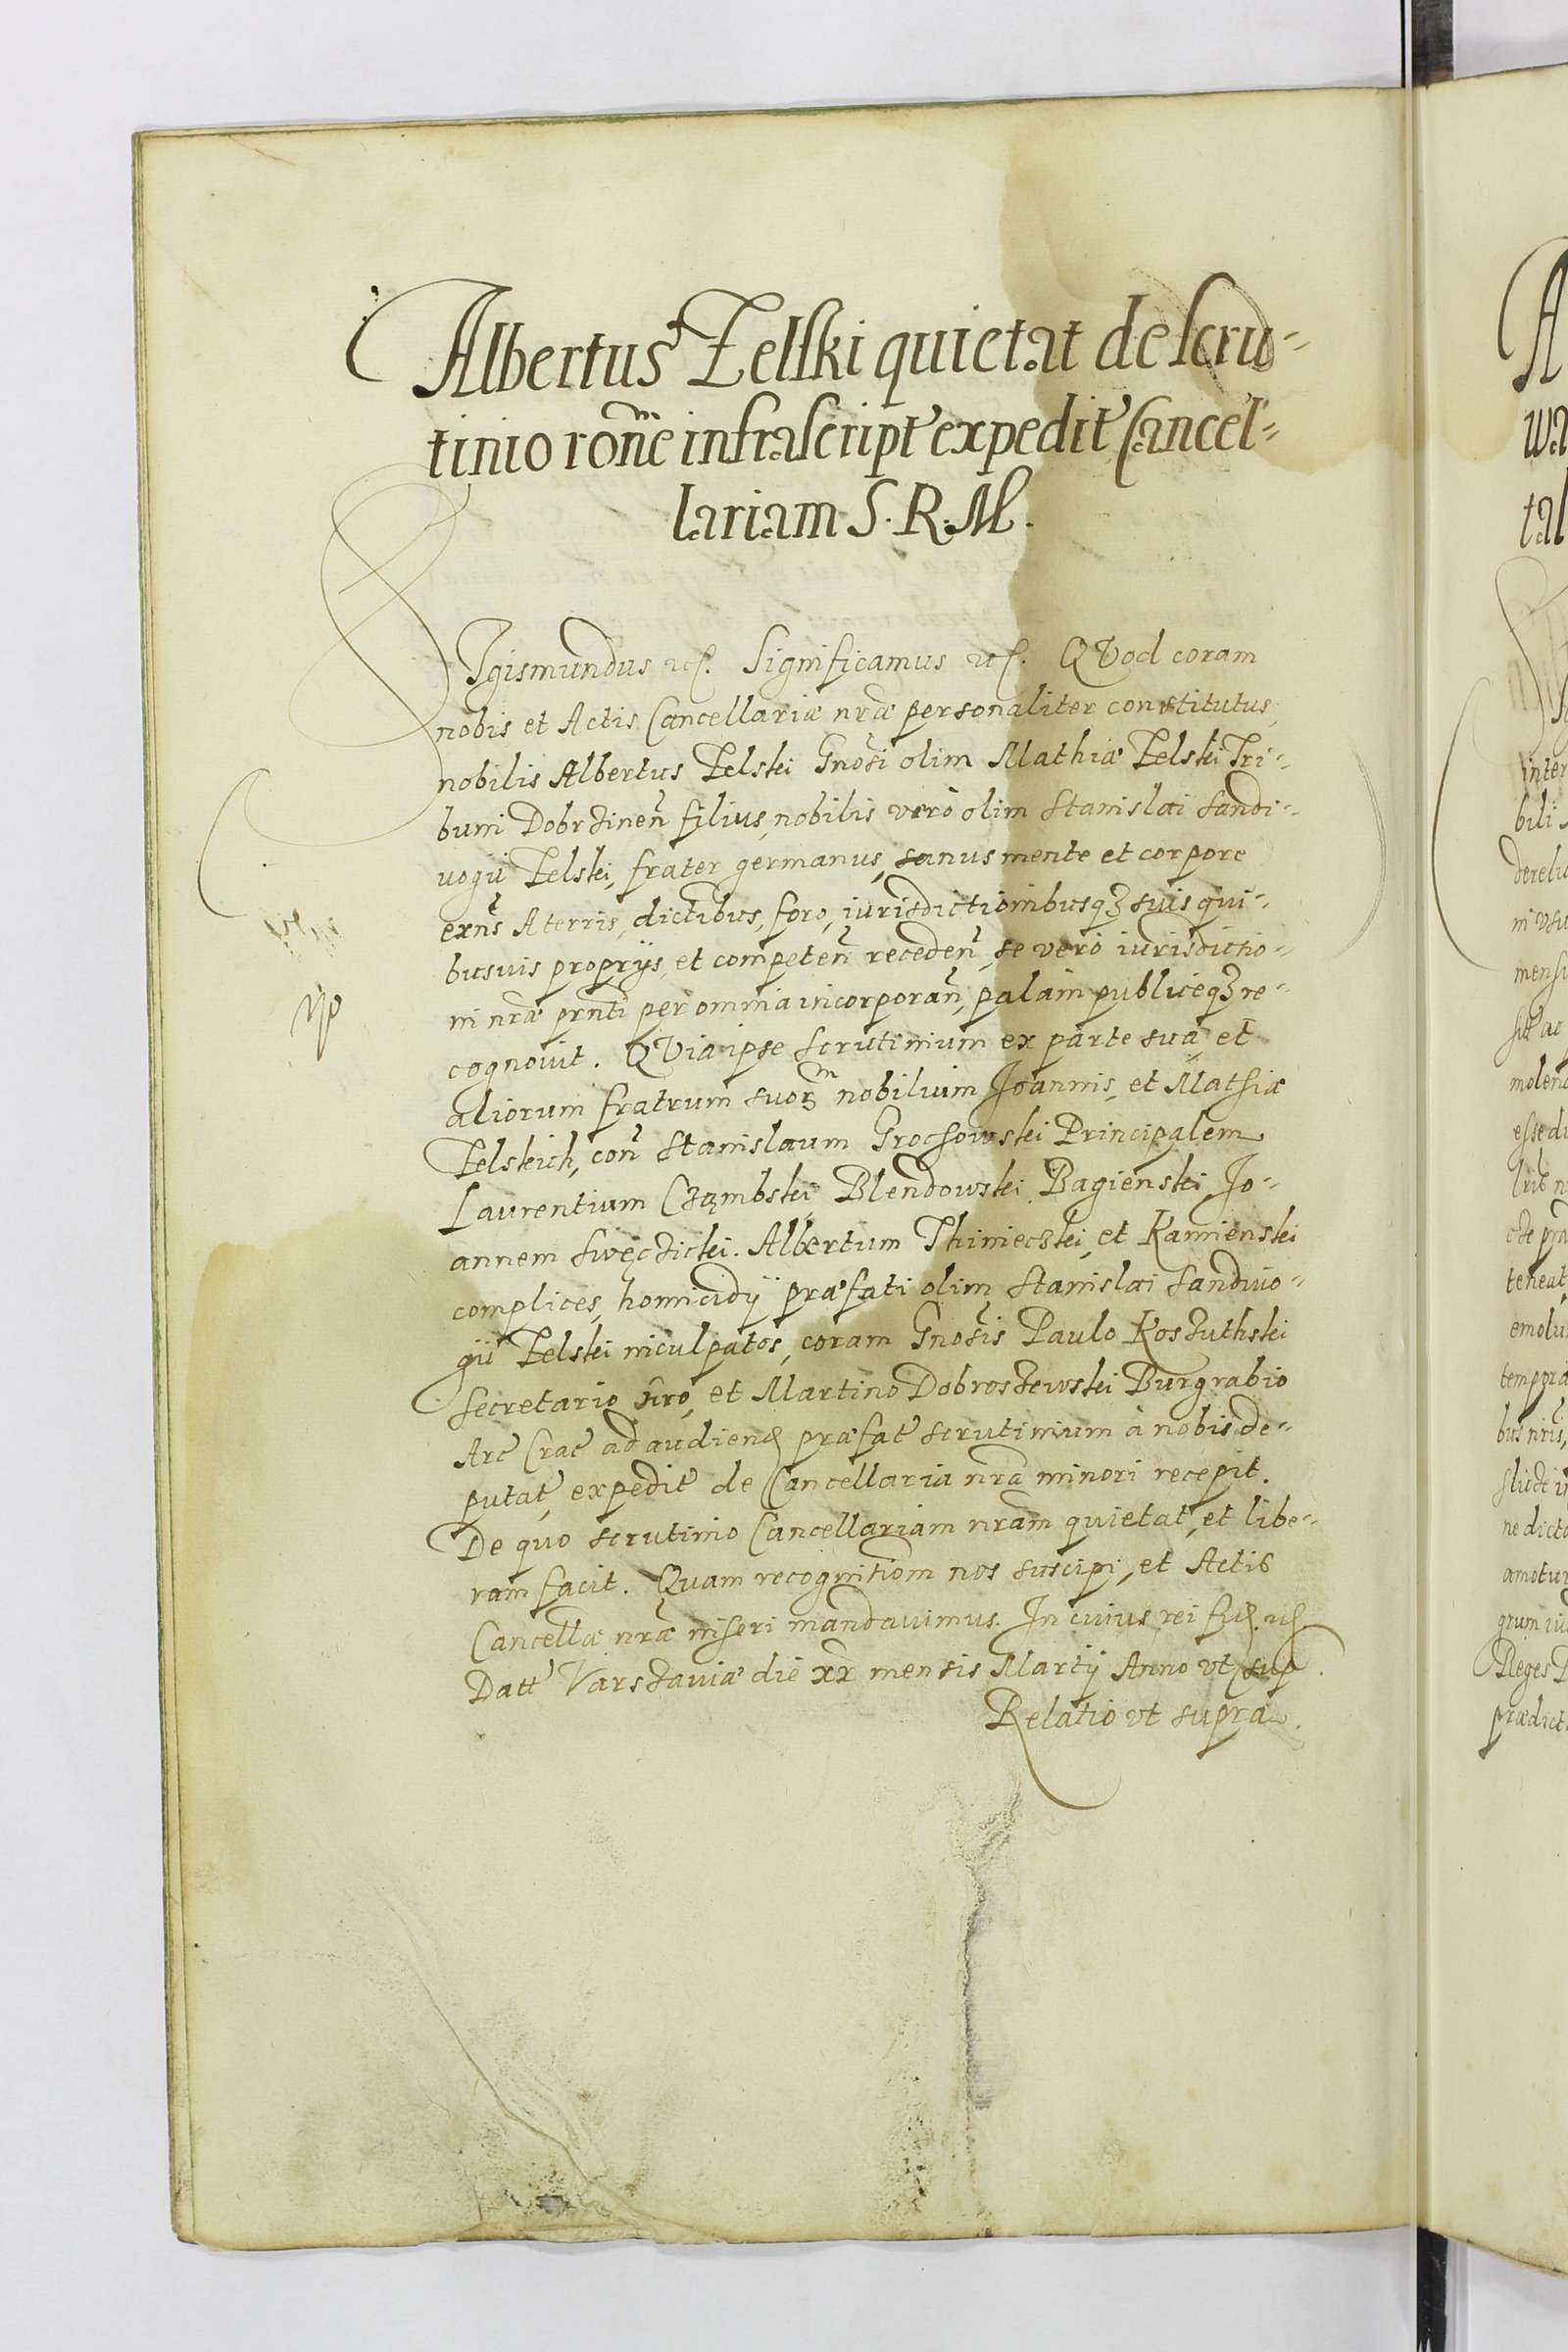 Albertus Zelski quietat de scru-
tinio rõne infrascript expedit Cancel-
lariam S. R. M.
SIgismundus etc. Significamus etc. QVod coram
nobis et Actis Cancellariæ nræ personaliter constitutus,
nobilis Albertus Zelski Gnosi olim Mathiæ Zelski Tri-
buni Dobrzinen filius, nobilis verò olim Stanislai Sandi-
uogii Zelski, frater germanus, sanus mente et corpore
exns A terris, dictibus, foro, iurisdictionibusq3 suis qui-
busuis proprijs, et competen receden, se verò iurisdictio-
ni nræ prnti per omnia incorporan, palàm publiceq3 re-
cognouit. QVia ipse scrutinium ex parte sua et
aliorum fratrum suor nobilium Joannis, et Mathiæ
Zelskich, con Stanislaum Grochowski Principalem
Laurentium Czambski, Blendowski, Bagienski, Jo-
annem Swęczicki. Albertum Thiniecski, et Kamienski
complices, homicidij præfati olim Stanislai Sandiuo-
gii Zelski inculpatos, coram Gnosis Paulo Koszuthski
Secretario nro, et Martino Dobroszewski Burgrabio
Arc Crac ad audiend præfat scrutinium à nobis de-
putat, expedit de Cancellaria nra minori recepit.
De quo scrutinio Cancellariam nram quietat, et libe-
ram facit. Quam recognitiom nos suscipi, et Actis
Cancellæ nræ inseri mandauimus. In cuius rei fid. etc.
Datt Varszauiæ die xx mensis Martij Anno vt sup.
Relatio vt supra.
A
wa
tal
inter
bili
derelic
ni vsu
mensi
sit ac
molend
esse di
teneat
emolu
tempora
bus nris,
ne dicto
amotur
Reges
prædict